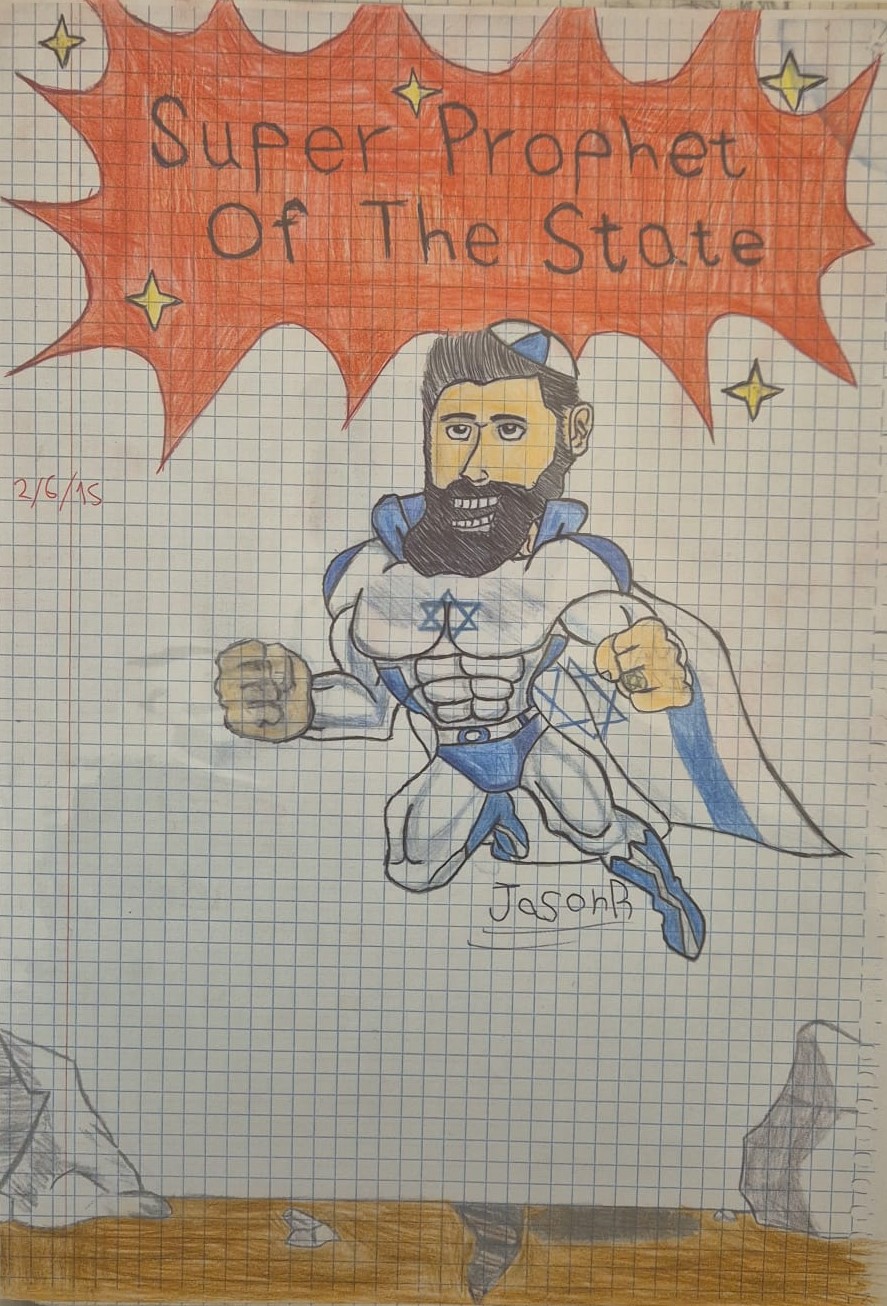 Super Prophet
Of The State
2/6/15
JasonR